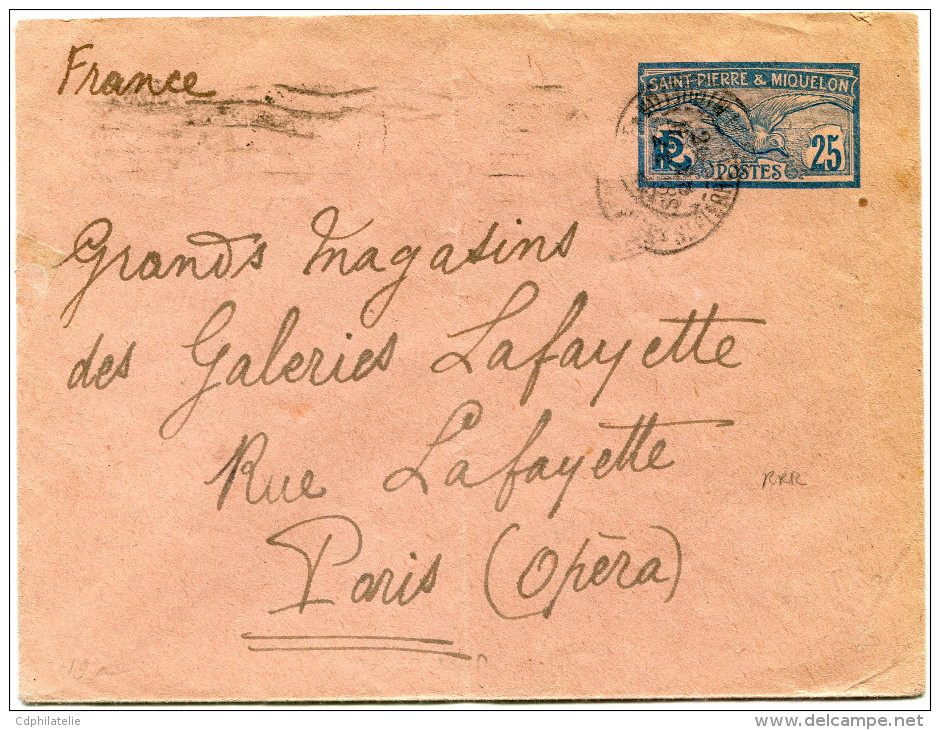 France
SAINT-PIERRE & MIQUELON
POSTES
25
Grands Magasins
des Galeries Lafayette
Rue Lafayette
RRR
Paris (Opéra)
Cdphilatelie
www.delcampe.net